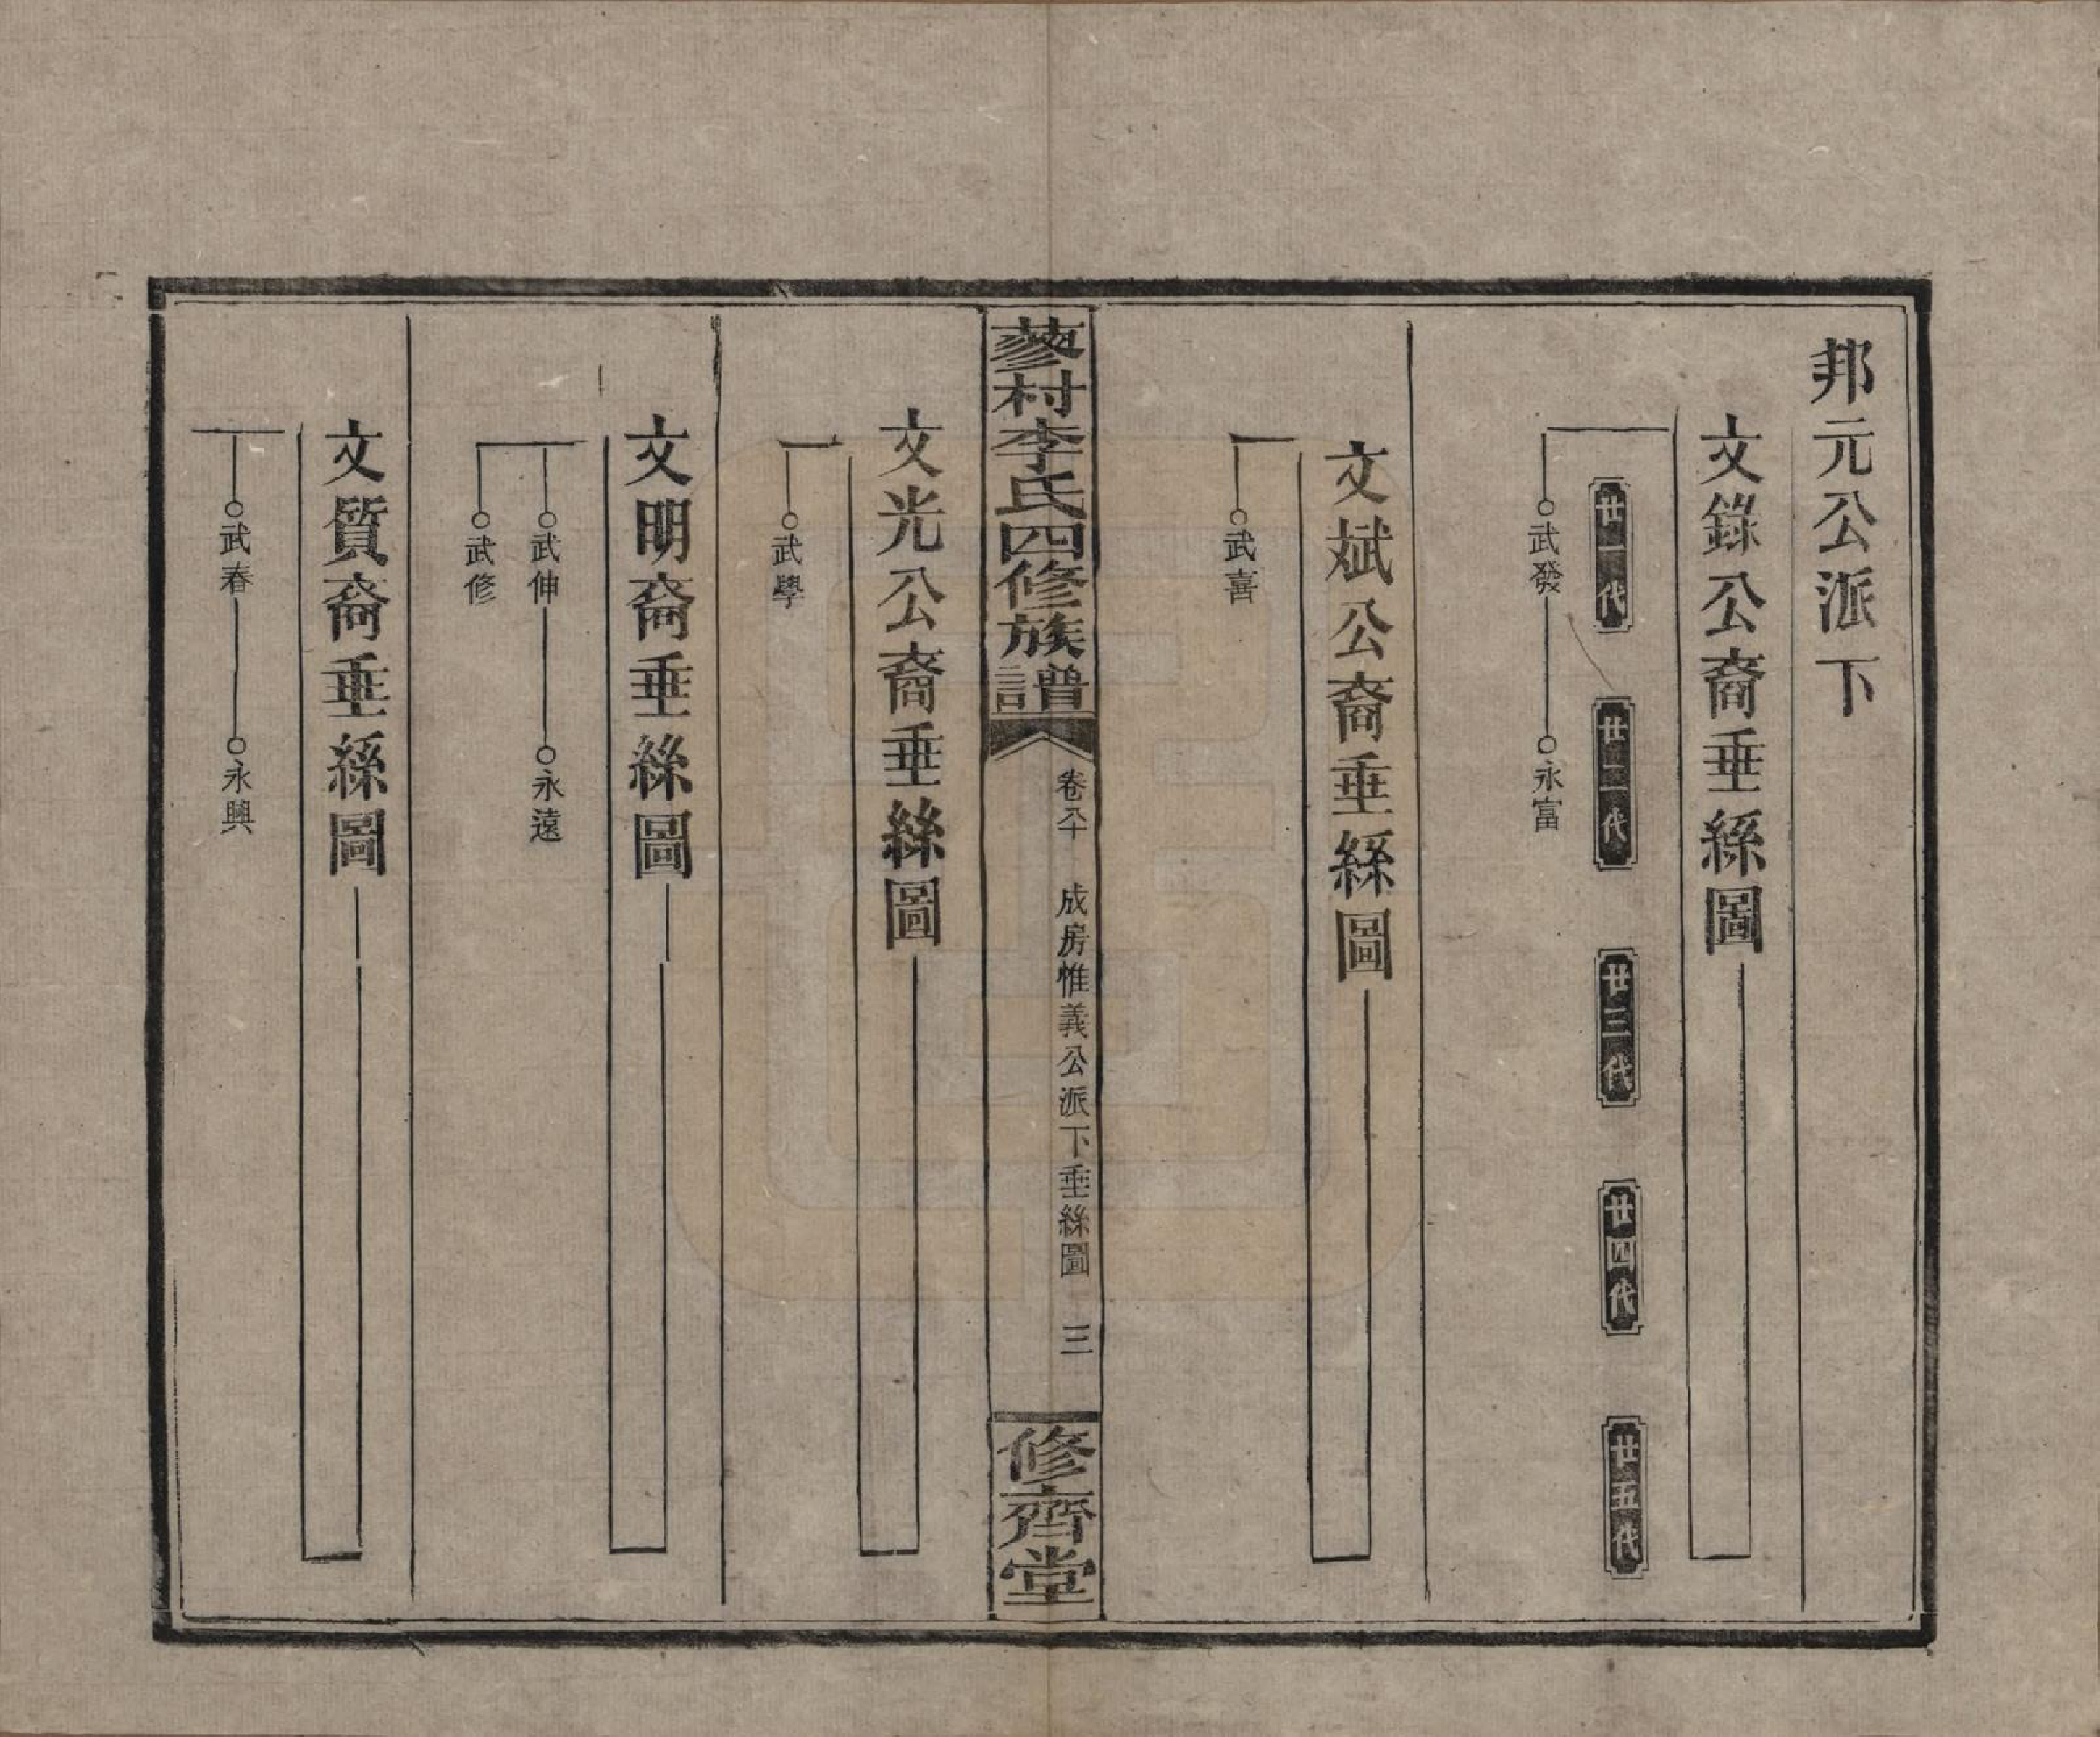 邦元公派下
文錄公裔垂絲圖
廿一代
廿二代
廿三代
廿四代
廿五代
武發
永富
文斌公裔垂絲圖
武喜
蓼村李氏四修族譜
卷八十
成房惟義公派下垂絲圖
三
修齊堂
文光公裔垂絲圖
武學
文明裔垂絲圖
武伸
永遠
武修
文質裔垂絲圖
武春
永興